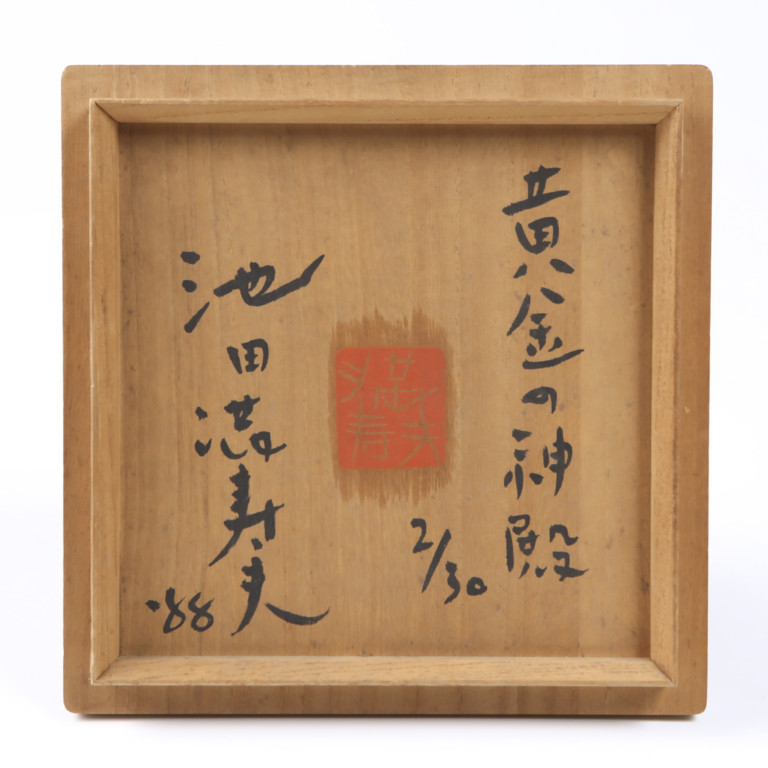 黄金の神殿
2/30
池田満寿夫
'88
満寿夫